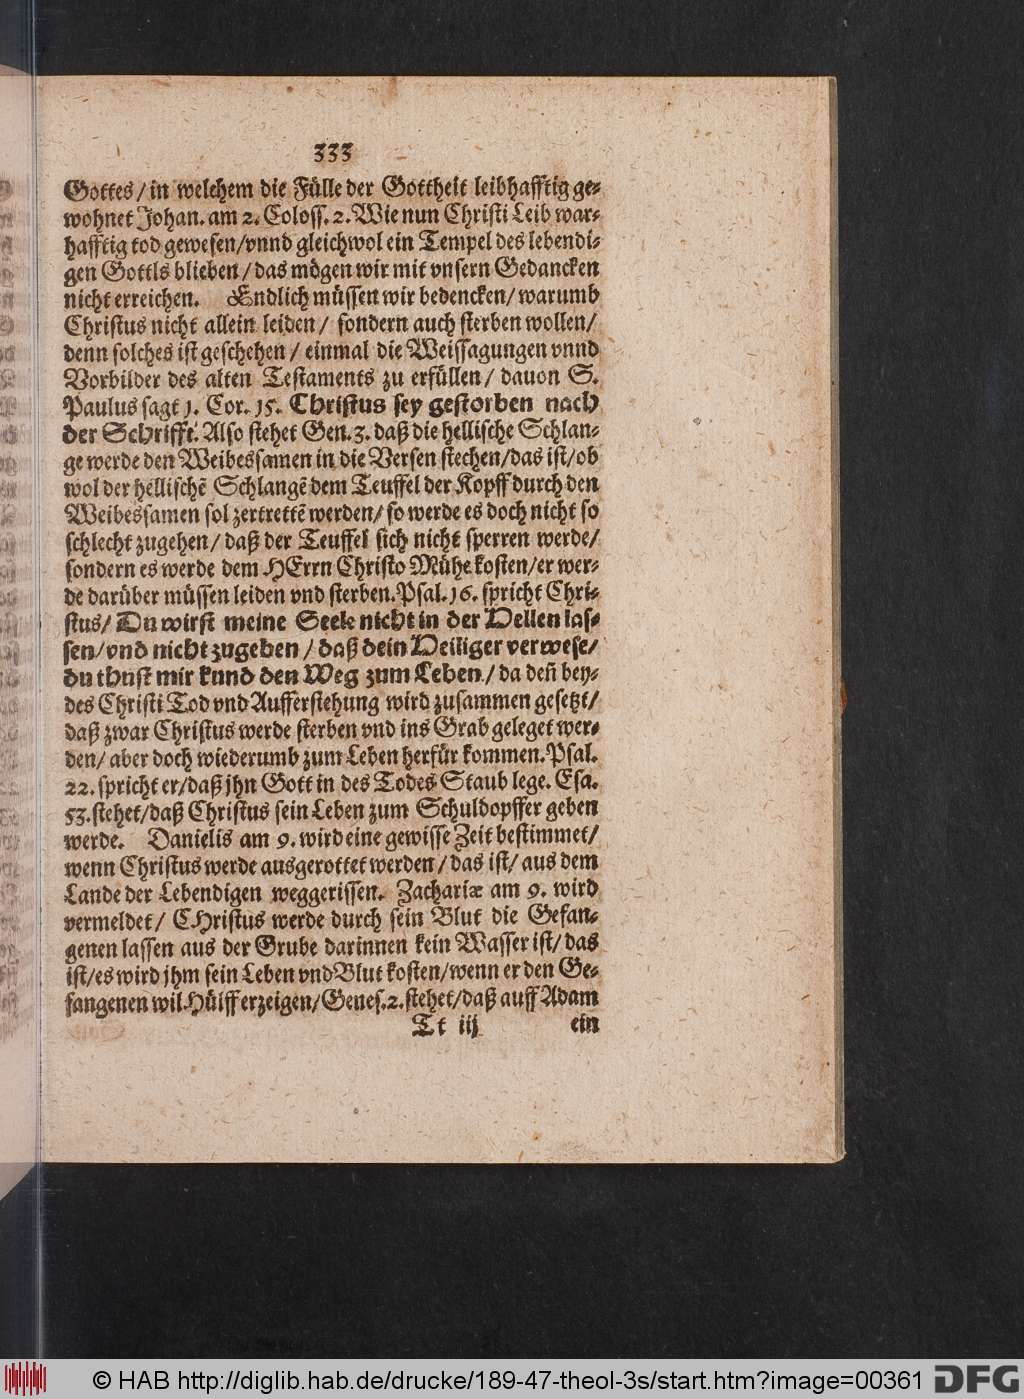 333
Gottes / in welchem die Fülle der Gottheit leibhafftig ge-
wohnet Johan. am 2. Coloss. 2. Wie nun Christi Leib war-
hafftig tod gewesen/vnnd gleichwol ein Tempel des lebendi-
gen Gottls blieben / das mögen wir mit vnsern Gedancken
nicht erreichen. Endlich müssen wir bedencken/ warumb
Christus nicht allein leiden / sondern auch sterben wollen/
denn solches ist geschehen / einmal die Weissagungen vnnd
Vorbilder des alten Testaments zu erfüllen / dauon S.
Paulus sagt 1. Cor. 15. Christus sey gestorben nach
der Schrifft. Also stehet Gen. 3. daß die hellische Schlan-
ge werde den Weibessamen in die Versen stechen/das ist/ob
wol der hellischē Schlangē dem Teuffel der Kopff durch den
Weibessamen sol zertrettē werden/ so werde es doch nicht so
schlecht zugehen / daß der Teuffel sich nicht sperren werde/
sondern es werde dem HErrn Christo Mühe kosten/er wer-
de darüber müssen leiden vnd sterben. Psal. 16. spricht Chri-
stus/ Du wirst meine Seele nicht in der Hellen las-
sen/vnd nicht zugeben / daß dein Heiliger verwese/
du thust mir kund den Weg zum Leben / da deñ bey-
des Christi Tod vnd Aufferstehung wird zusammen gesetzt/
daß zwar Christus werde sterben vnd ins Grab geleget wer-
den/ aber doch wiederumb zum Leben herfür kommen. Psal.
22. spricht er/daß jhn Gott in des Todes Staub lege. Esa.
53. stehet/daß Christus sein Leben zum Schuldopffer geben
werde. Danielis am 9. wird eine gewisse Zeit bestimmet/
wenn Christus werde ausgerottet werden / das ist/ aus dem
Lande der Lebendigen weggerissen. Zachariæ am 9. wird
vermeldet/ CHristus werde durch sein Blut die Gefan-
genen lassen aus der Grube darinnen kein Wasser ist/ das
ist/es wird jhm sein Leben vnd Blut kosten/wenn er den Ge-
fangenen wil Hülff erzeigen/Genes. 2. stehet/daß auff Adam
Tt iij ein
© HAB http://diglib.hab.de/drucke/189-47-theol-3s/start.htm?image=00361 DFG